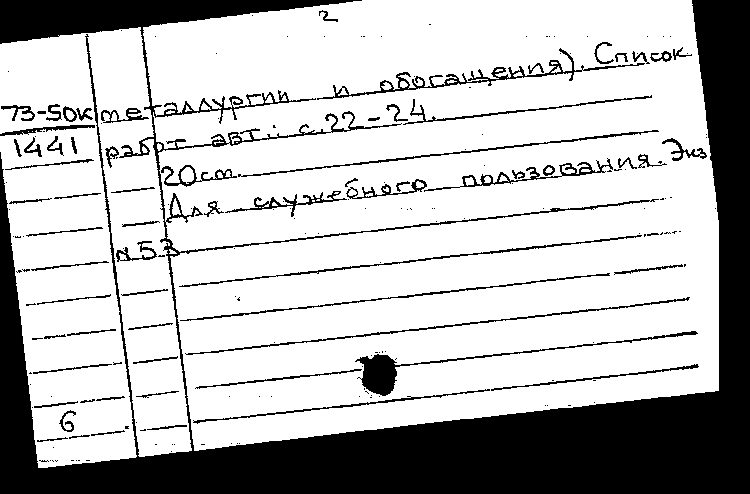 2
73-50к металлургии и обогащения). Список
1441 работ авт.: с.22-24.
20см.
Для служебного пользования. Экз.
N.53
6